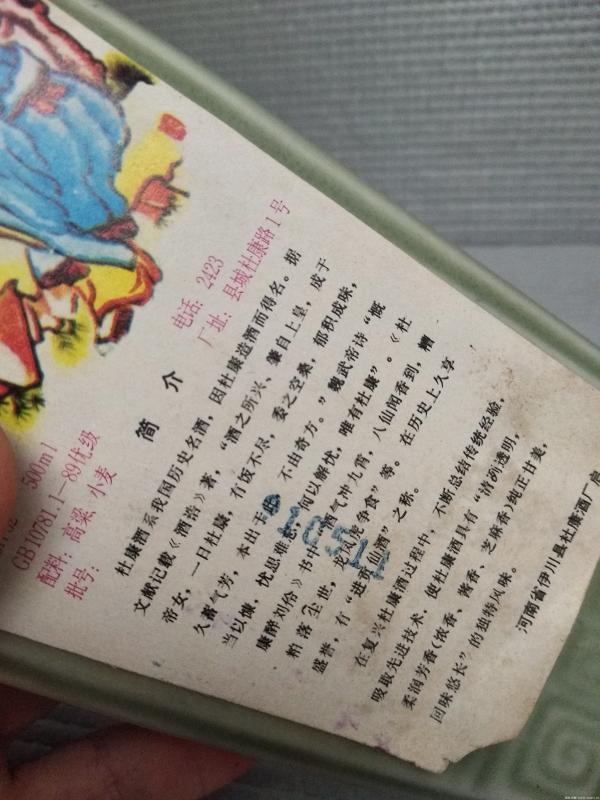 500ml
GB10781.1—89优级
配料：高粱、小麦
批号：
电话：2423
厂址：县城杜康路1号
简介
杜康酒系我国历史名酒，因杜康造酒而得名。据
文献记载《酒诰》著，“酒之所兴、肇自上皇，成于
帝女，一曰杜康，有饭不尽，委之空桑，郁积成味，
久蓄气芳，本出于
，不由奇方。”魏武帝诗“慨
当以慷，忧思难
何以解忧，唯有杜康”。《杜
康醉刘伶》书中
酒气冲九霄，八仙闻香到，糟
粕落尘世，龙凤走争食”等。在历史上久享
盛誉，有“进
仙酒”之称。
在复兴杜康酒过程中，不断总结传统经验，
吸取先进技术，使杜康酒具有“清冽透明，
柔润芳香(浓香、酱香、芝麻香)纯正甘美，
回味悠长”的独特风味。
河南省伊川县杜康酒厂启